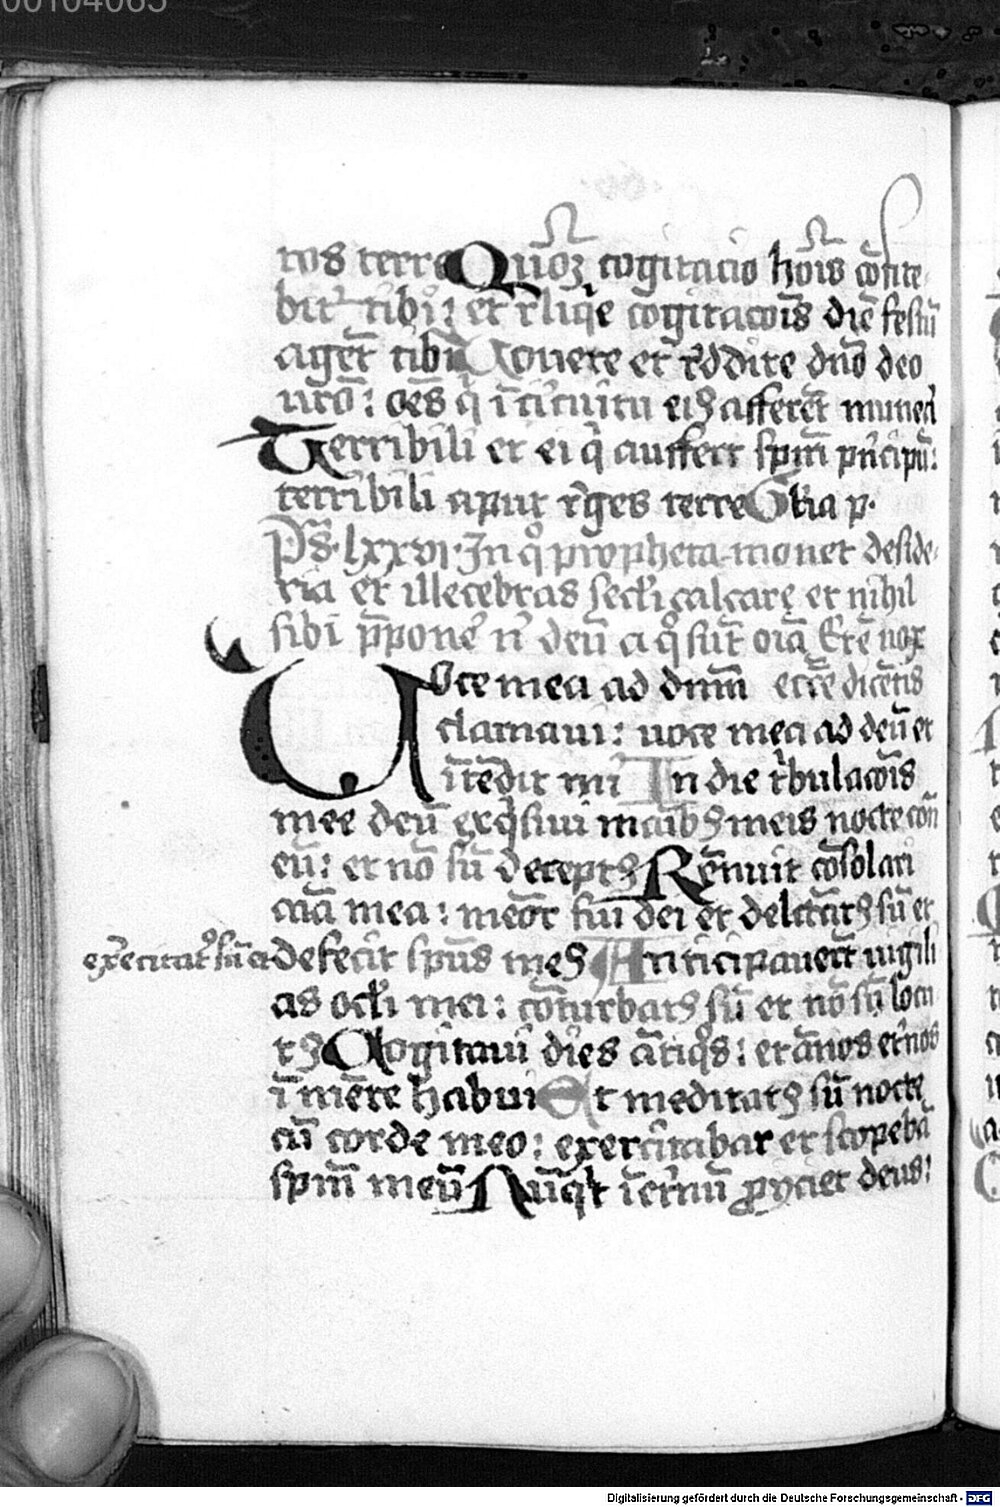 00104065
tos terre Qūoꝫ cogitacio hōis ꝯ̄fite-
bit᷑ tibi: et rĺiqͥe cogitacōis diē festū
agēt tibi Uouere et rēddite dn̄o deo
vr̄o: oēs qͥ ī cͥcuitu eiꝰ affer̄et munera
Terribili et ei qͥ auffert spm̄ pͥncipū:
terribili aput rēges terre Gĺia p.
Ps̄. lxxvi. In qͦ propheta monet deside-
ria et illecebras secĺi calcare et nihil
sibi p̄pone᷑ nͥ deū a qͦ sūt oīa Ere᷑ vox
Uoce mea ad dnm̄ eccē dicētis
clamaui: uoce mea ad deū et
ītēdit mi In die tͥbulacōis
mee deū exqͥsiui maībꝰ meis nocte con̄
eū: et nō sū deceptꝰ Rēnuit cōsolari
aīa mea: memor fui dei et delc̄tatꝰ sū et
exēcitatꝰ sū et defecit spūs meꝰ Anticipauer̄t uigili
as ocĺi mei: cōturbatꝰ sū et nō sū locu
tꝰ Cogitaui dies ātiqͦs: et ānos et᷑nos
ī mēte habui Et meditatꝰ sū nocte
cū corde meo: exercitabar et scopebā
spm̄ meū Nūqͥd īet᷑nū ꝓyciet deus:
Digitalisierung gefördert durch die Deutsche Forschungsgemeinschaft - DFG